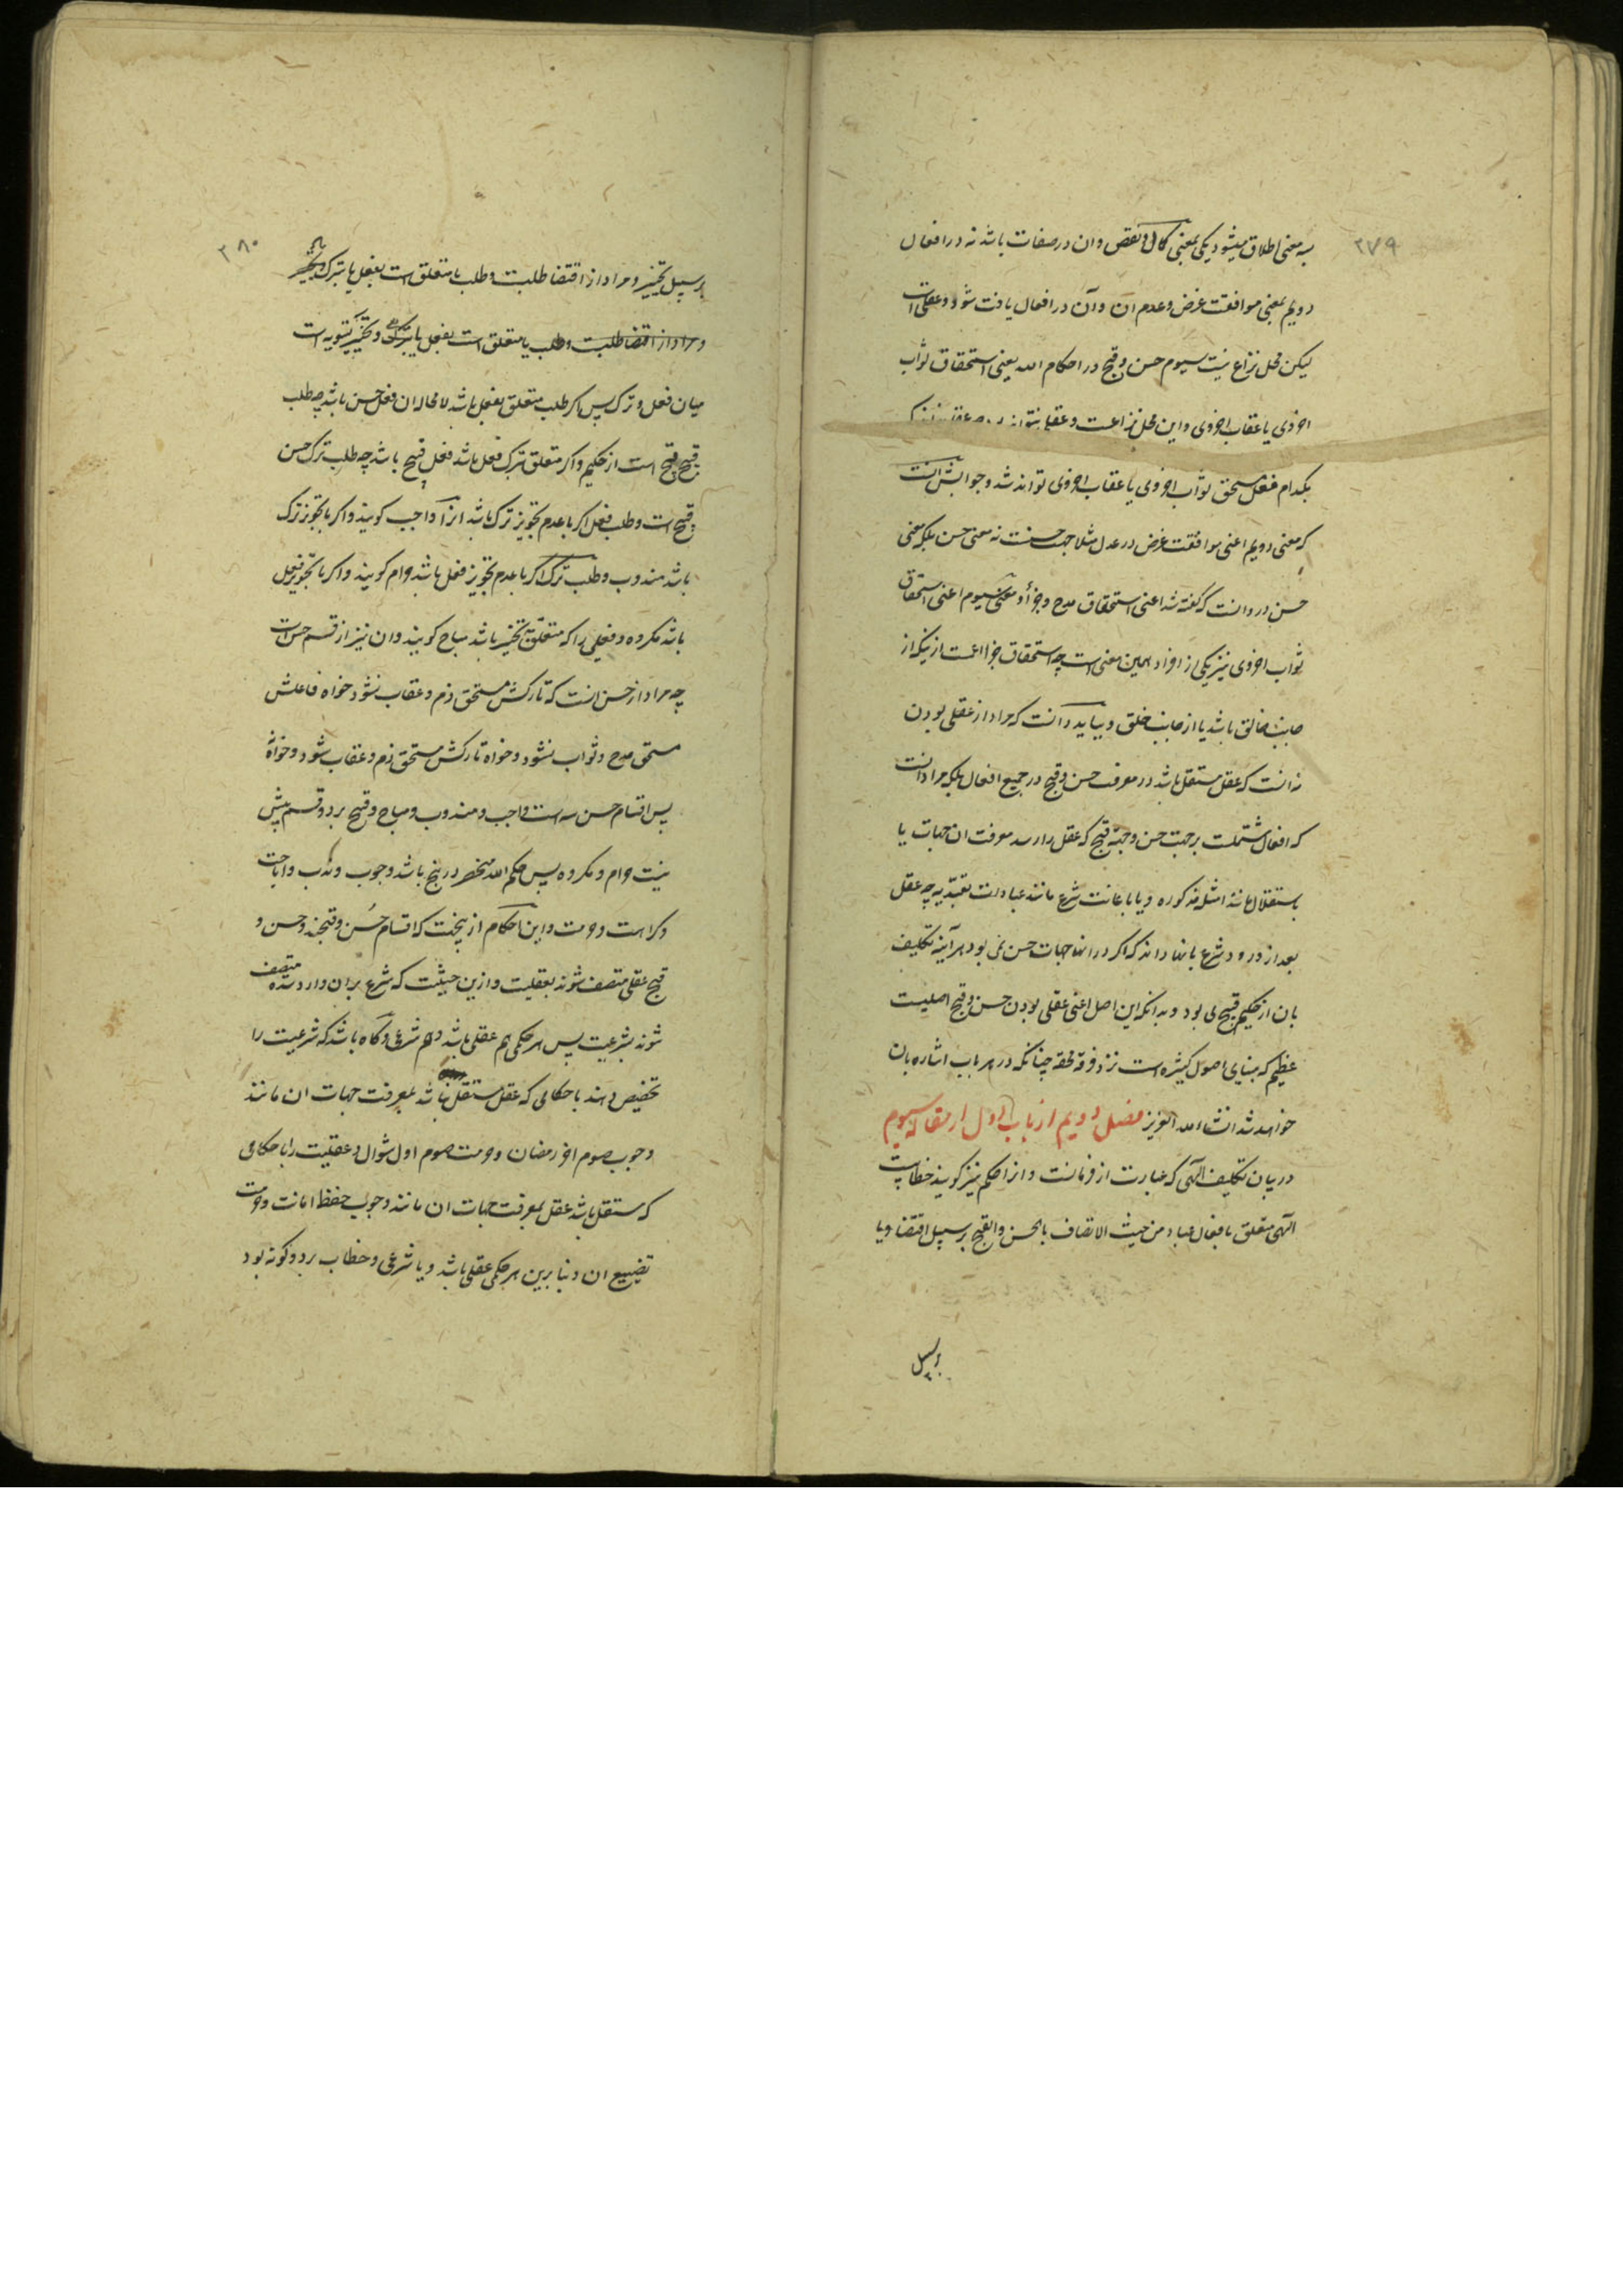 ۲۷۹
به معنی اطلاق میشود یکی بمعنی کمال و نقص و ان در صفات باشد نه در افعال
دویم بمعنی موافقت غرض و عدم ان و آن در افعال یافت شود و عقلی است
لیکن محل نزاع نیست سیوم حسن و قبح در احکام الله یعنی استحقاق ثواب
اخروی یا عقاب اخروی و این محل نزاعست و عقلی نتواند بود چه عقل
بکدام فعل مستحق ثواب اخروی یا عقاب اخروی تواند شد و جوابش انست
که معنی دویم اعنی موافقت غرض در عدل مثلا جهت حسنست نه معنی حسن بلکه معنی
حسن در و انست که گفته شد اعنی استحقاق مدح و جزا و معنی سیوم اعنی استحقاق
ثواب اخروی نیز یکی از افراد همین معنی است چه استحقاق جزا اعمست از اینکه از
جانب خالق باشد یا از جانب خلق و بباید دانست که مراد از عقلی بودن
نه انست که عقل مستقل باشد در معرفت حسن و قبح در جمیع افعال بلکه مراد انست
که افعال مشتملست بر جهت حسن و جهة قبح که عقل را رسد معرفت ان جهات یا
باستقلال مانند امثله مذکوره و یا باعانت شرع مانند عبادات تعبدیه چه عقل
بعد از ورود شرع بانها داند که اگر در انها جهات حسن نمی بود هر آینه تکلیف
بان از حکیم قبیح می بود و بدانکه این اصل اعنی عقلی بودن حسن و قبح اصلیست
عظیم که مبنای اصول کثیره است نزد فرقه محقه چنانکه در هر باب اشاره بان
خواهد شد انشاء الله العزیز فصل دویم از باب اول از مقاله سیوم
در بیان تکلیف الهی که عبارت از فرمانست و انرا حکم نیز گویند خطابیست
الهی متعلق بافعال عباد من حیث الاتصاف بالحسن و القبح بر سبیل اقتضا و یا
بر سبیل
۲۸۰
بر سبیل تخییر و مراد از اقتضا طلبست و طلب یا متعلق است بفعل یا بترک
و مراد از اقتضا طلبست و طلب یا متعلق است بفعل یا بترک و تخییر تسویه است
میان فعل و ترک پس اگر طلب متعلق بفعل باشد لا محاله ان فعل حسن باشد چه طلب
قبیح قبیح است از حکیم و اگر متعلق بترک فعل باشد فعل قبیح باشد چه طلب ترک حسن
قبیح است و طلب فعل اگر با عدم تجویز ترک باشد انرا واجب گویند و اگر با تجویز ترک
باشد مندوب و طلب ترک اگر با عدم تجویز فعل باشد حرام گویند و اگر با تجویز فعل
باشد مکروه و فعلی را که متعلق به تخییر باشد مباح گویند و ان نیز از قسم حسن است
چه مراد از حسن انست که تارکش مستحق ذم و عقاب نشود خواه فاعلش
مستحق مدح و ثواب نشود و خواه تارکش مستحق ذم و عقاب شود و خواه نه
پس اقسام حسن سه است واجب و مندوب و مباح و قبیح بر دو قسم بیش
نیست حرام و مکروه پس حکم الله منحصر در پنج باشد وجوب و ندب و اباحت
و کراهت و حرمت و این احکام ازینجهت که اقسام حسن و قبحند و حسن و
قبح عقلی متصف شوند بعقلیت و ازین حیثیت که شرع بران وارد شده متصف
شوند بشرعیت پس هر حکمی هم عقلی باشد و هم شرعی و گاه باشد که شرعیت را
تخصیص دهند باحکامی که عقل مستقل نباشد بمعرفت جهات ان مانند
وجوب صوم اخر رمضان و حرمت صوم اول شوال و عقلیت را باحکامی
که مستقل باشد عقل بمعرفت جهات ان مانند وجوب حفظ امانت و حرمت
تضییع ان و بنابرین هر حکمی عقلی باشد و یا شرعی و خطاب بر دو گونه بود